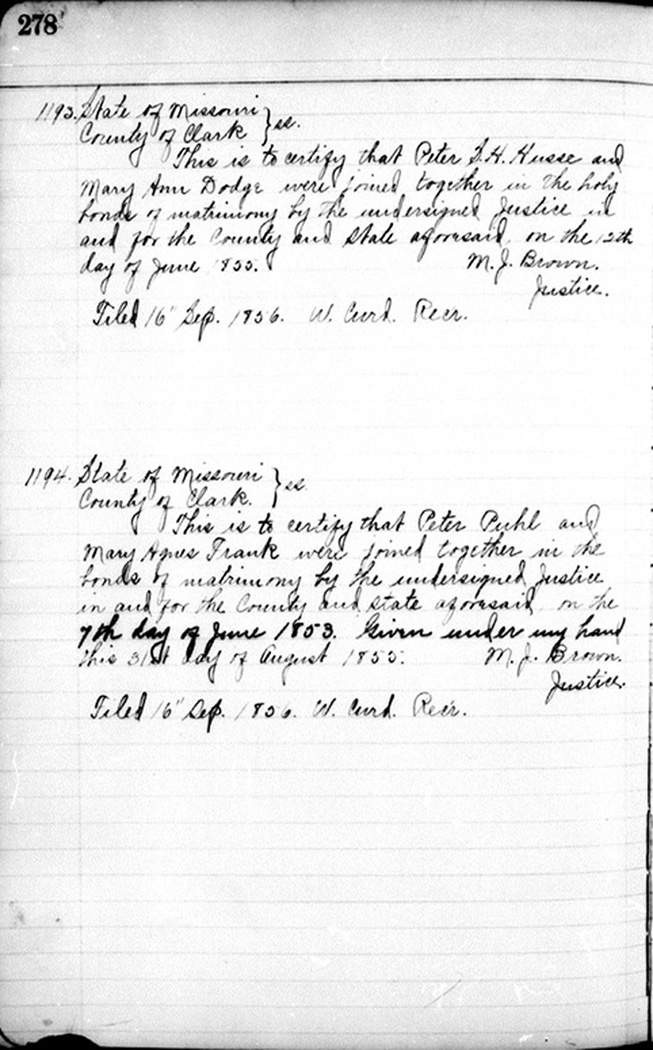 278
1193. State of Missouri
County of Clark } ss.
This is to certify that Peter S. H. Husse and
Mary Ann Dodge were joined together in the holy
bonds of matrimony by the undersigned Justice in
and for the County and State aforesaid, on the 12th
day of June 1855. M. J. Brown.
Justice.
Filed 16" Sep. 1856. W. Curd. Recr.
1194. State of Missouri
County of Clark. } ss
This is to certify that Peter Puhl and
Mary Agnes Frank were joined together in the
bonds of matrimony by the undersigned Justice
in and for the County and State aforesaid on the
7th day of June 1853. Given under my hand
this 31st day of August 1855. M. J. Brown.
Justice.
Filed 16" Sep. 1856. W. Curd. Recr.